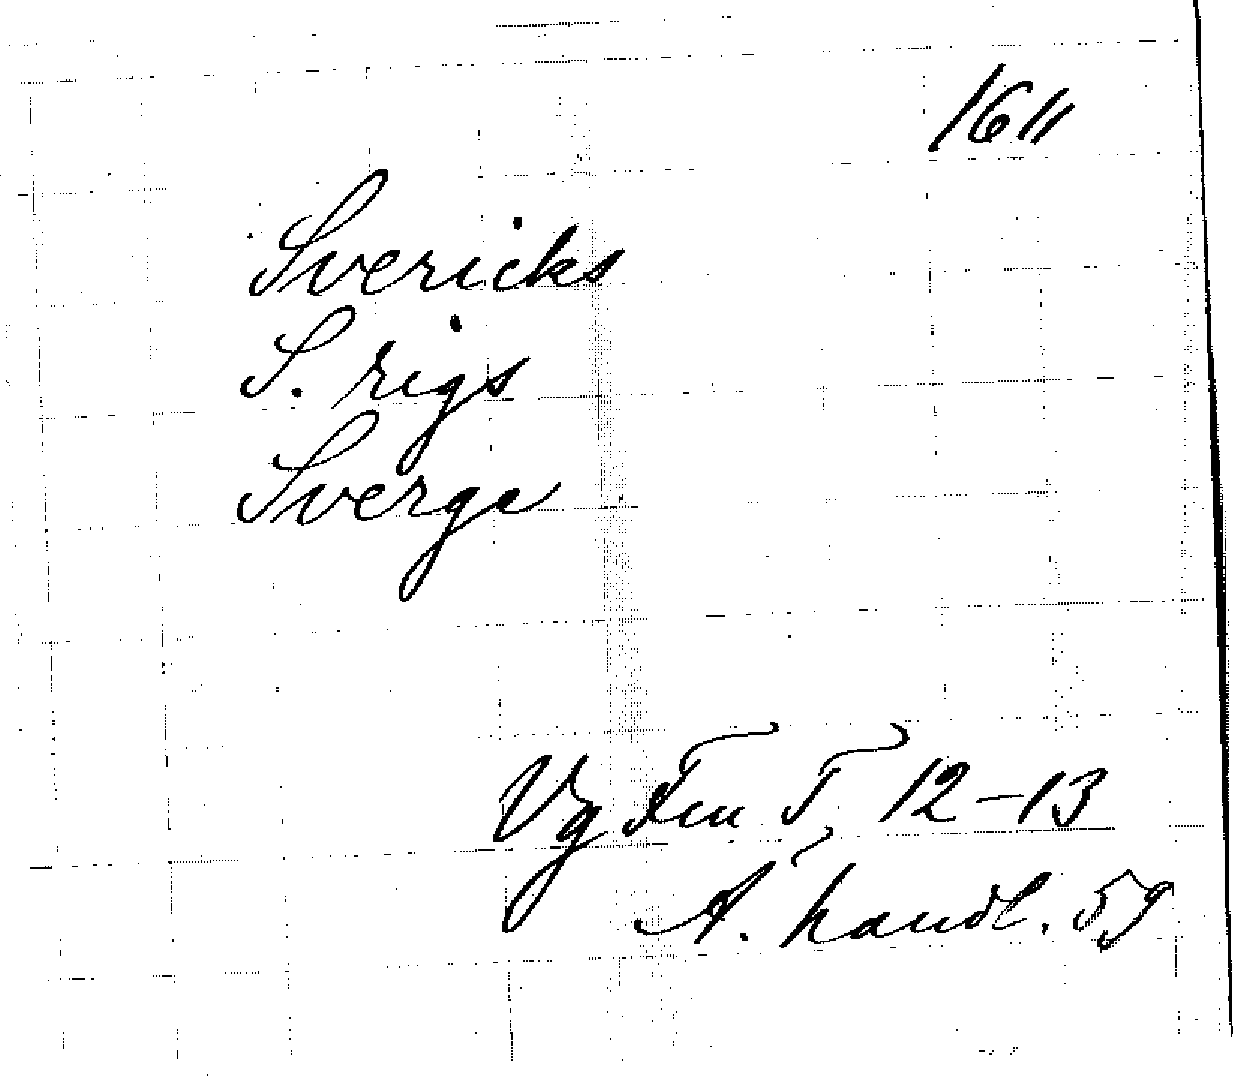 1611
Svericks
S. rigs
Sverge
Vg Fen T 12-13
A. handl. 59